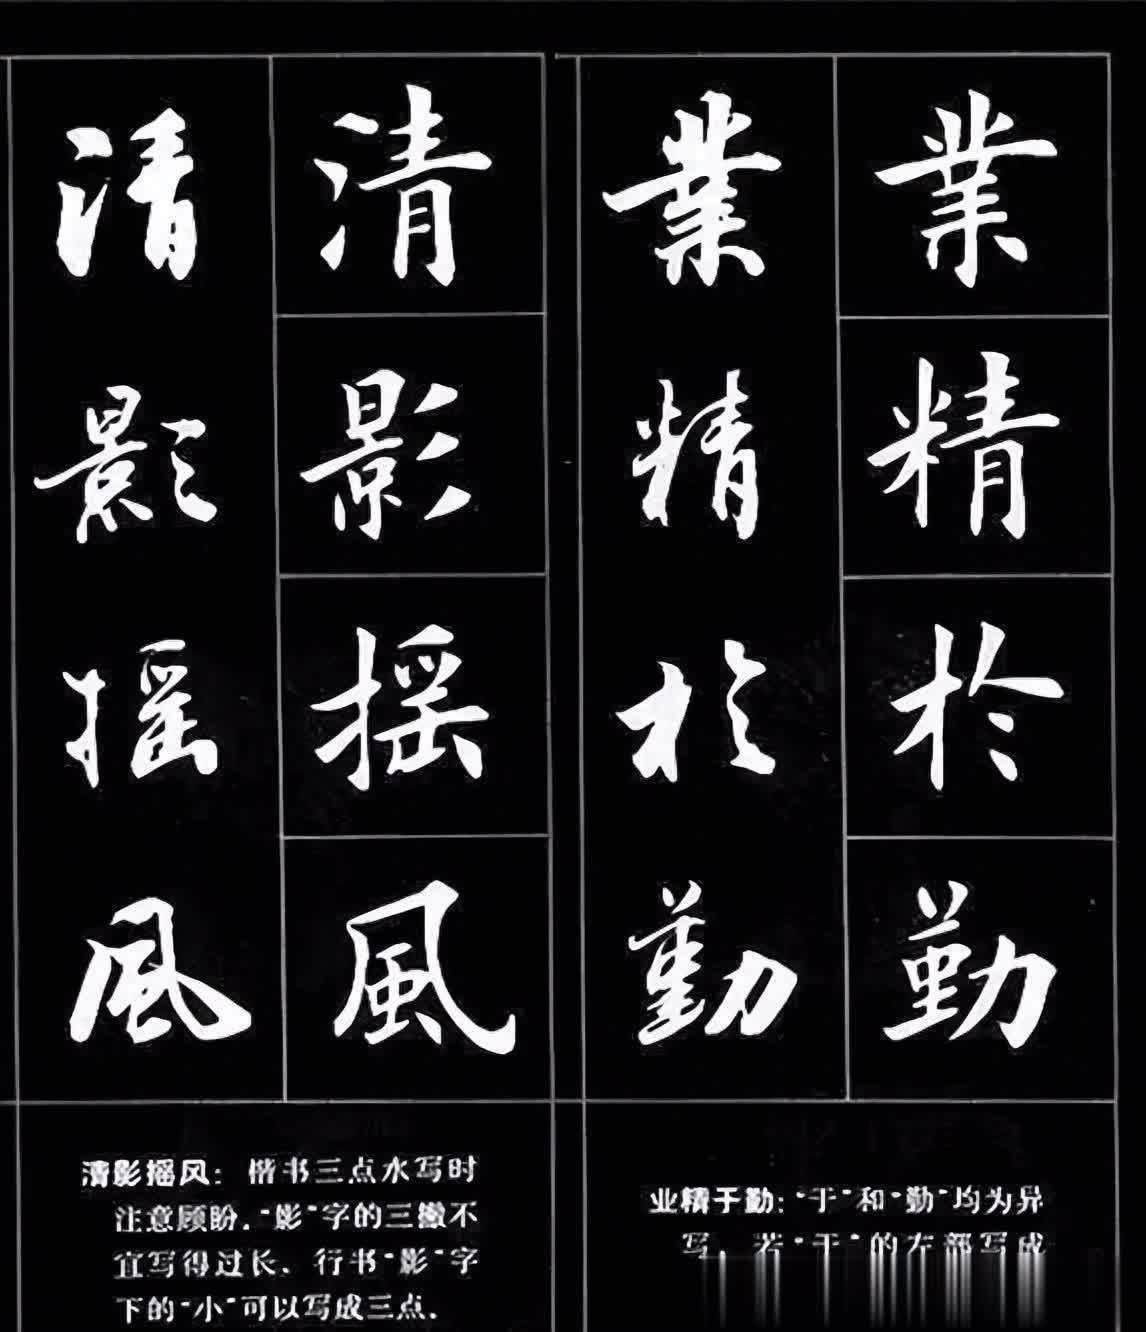 業精於勤
業精於勤
清影摇風
清影摇風
业精于勤："于"和"勤"均为异
写，若"于"的左部写成
清影摇风：楷书三点水写时
注意顾盼，"影"字的三撇不
宜写得过长，行书"影"字
下的"小"可以写成三点。